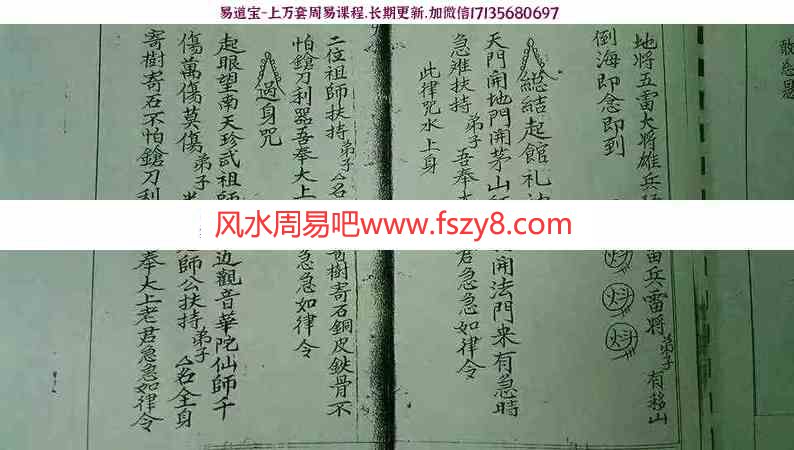 易道宝-上万套周易课程.长期更新.加微信17135680697
敢怠慢
地將五雷大將雄兵 雷兵雷將弟子有移山
倒海即念即到
總結起館礼法
天門開地門開茅山 開法門来有急時
急难扶持弟子吾奉 君急急如律令
此律咒水上身
二位祖師扶持弟子 名 寄樹寄石銅皮鉄骨不
怕鎗刀利器吾奉大上 急急如律令
過身咒
起眼望南天珍武祖師 边觀音華陀仙師千
傷萬傷莫傷弟子 師公扶持弟子 名全身
寄樹寄石不怕鎗刀利 奉大上老君急急如律令
风水周易吧www.fszy8.com